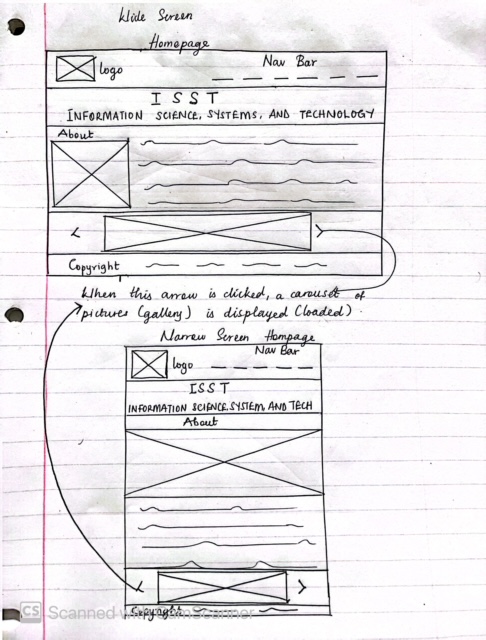 Wide Screen
Homepage
logo
Nav Bar
I S S T
INFORMATION SCIENCE, SYSTEMS, AND TECHNOLOGY
About
< >
Copyright
When this arrow is clicked, a carousel of
pictures (gallery) is displayed (loaded).
Narrow Screen Hompage
logo
Nav Bar
ISST
INFORMATION SCIENCE, SYSTEM, AND TECH
About
< >
Copyright
CS Scanned with CamScanner